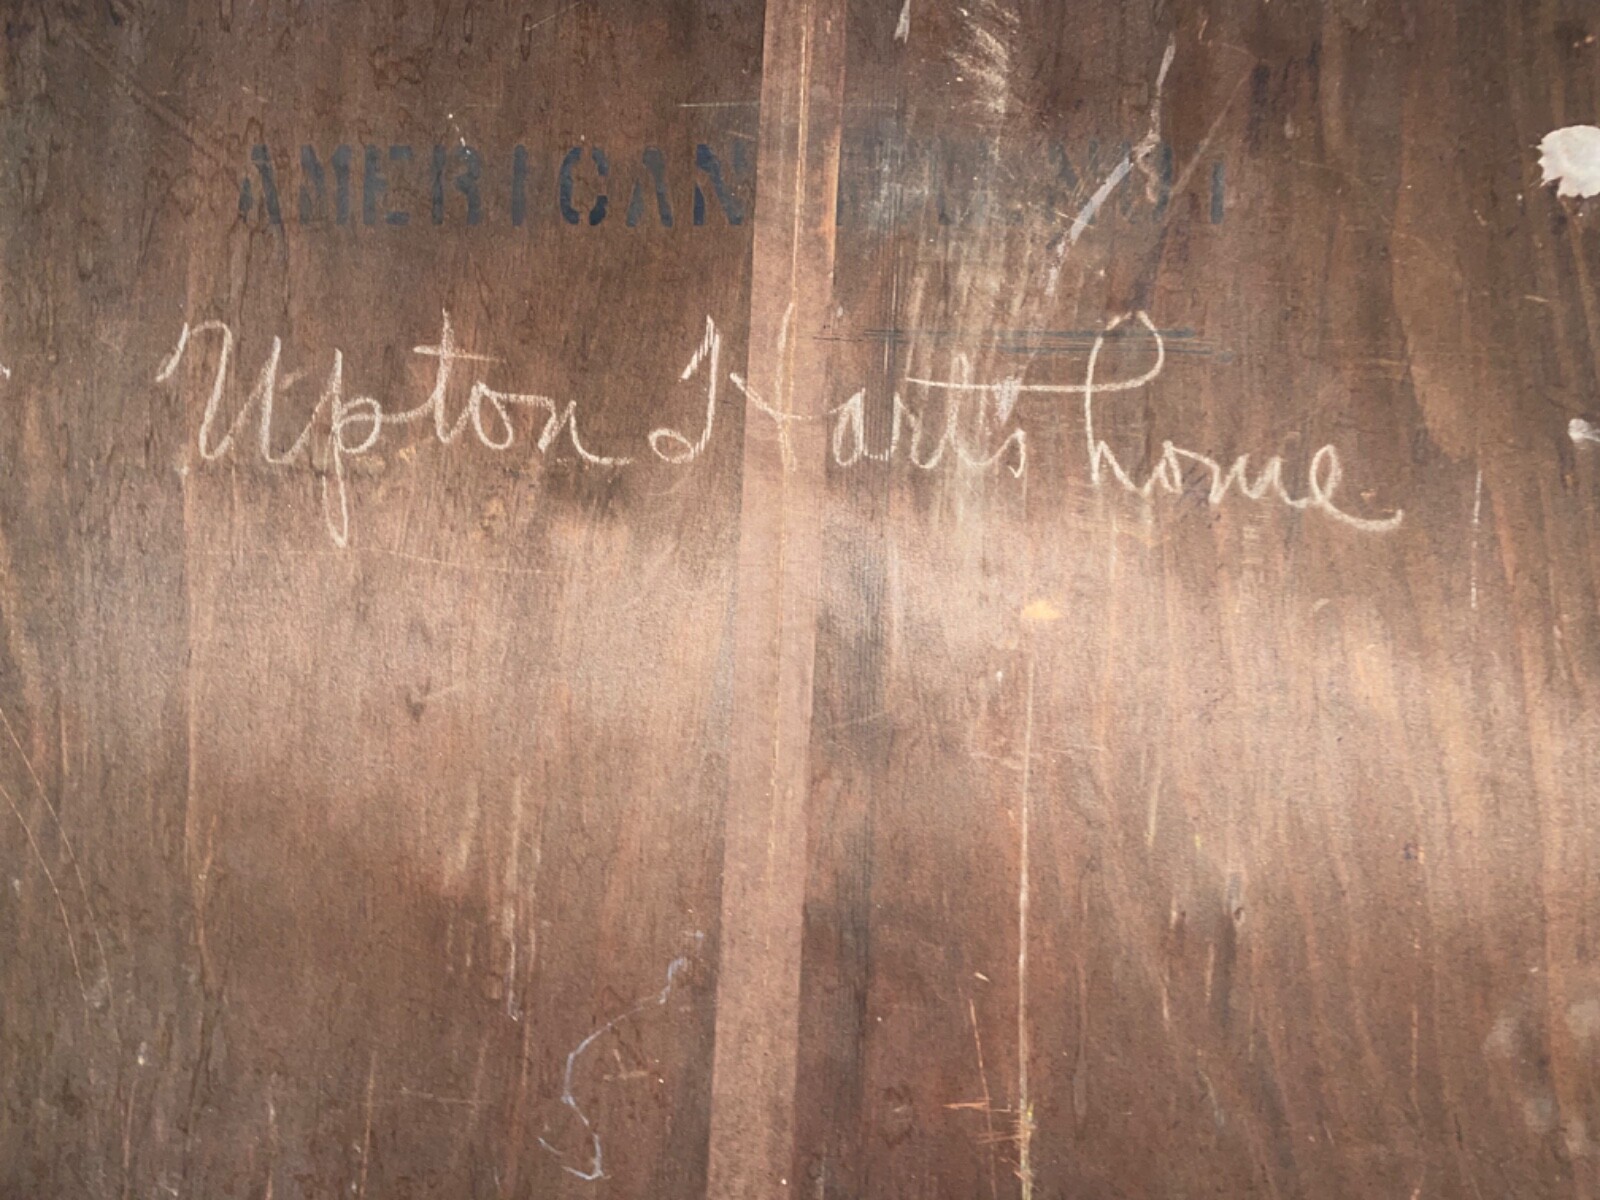 AMERICAN
Upton Hart's home